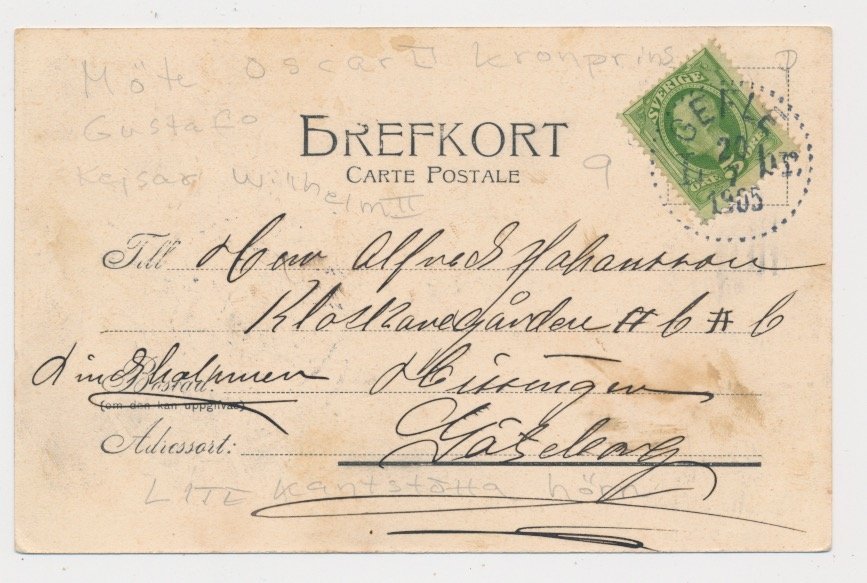 Möte Oscar II Kronprins
Gustaf
Kejsar Wilhelm II
9
BREFKORT
CARTE POSTALE
SVERIGE
GEFLE
20 7
1905
Till Herr Alfred Johansson
Klockaregården # 6 # 6
Lindholmen Hisingen
Bostad:
(om den kan uppgifvas)
Adressort: Göteborg
LITE kantstötta hörn